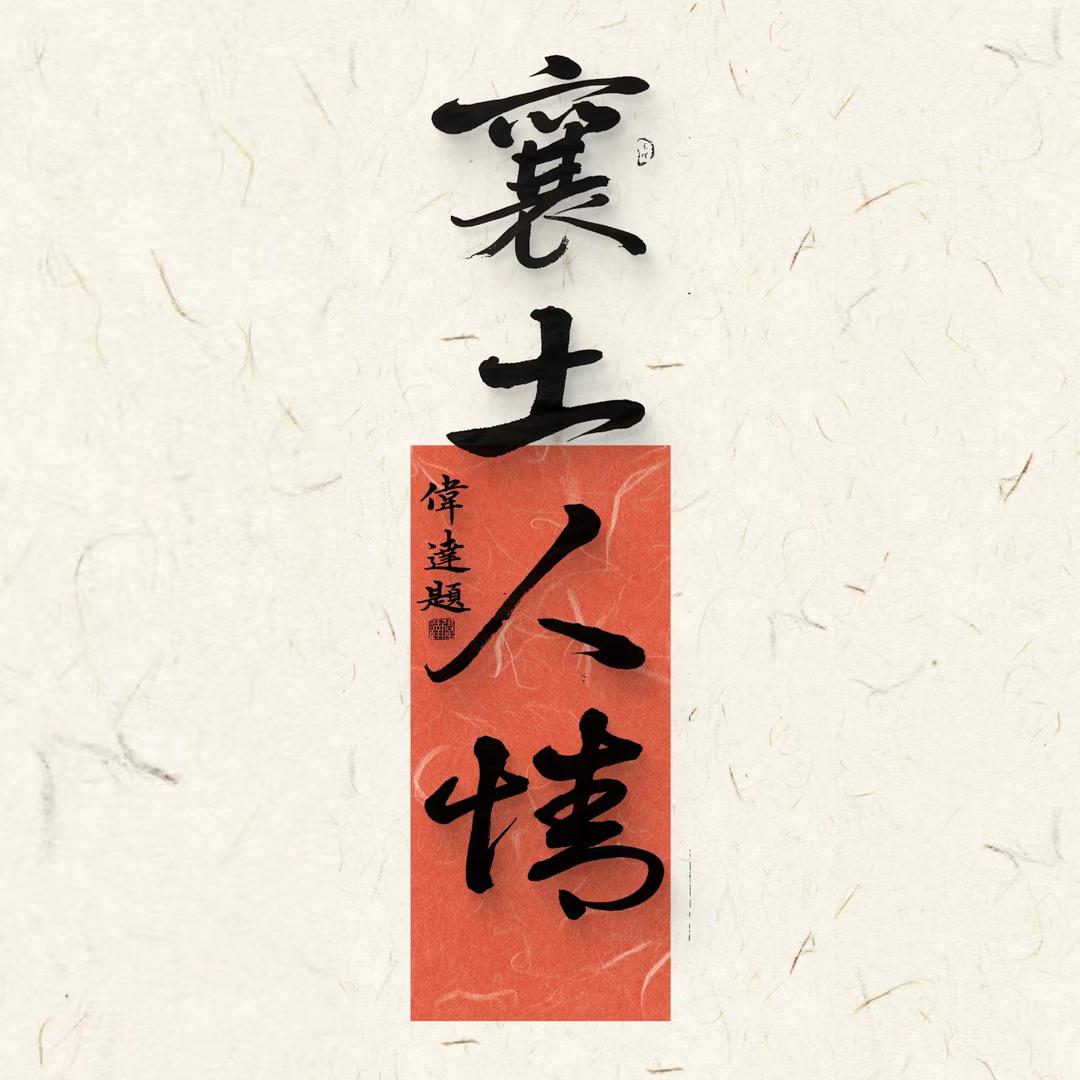 襄土人情
偉達題